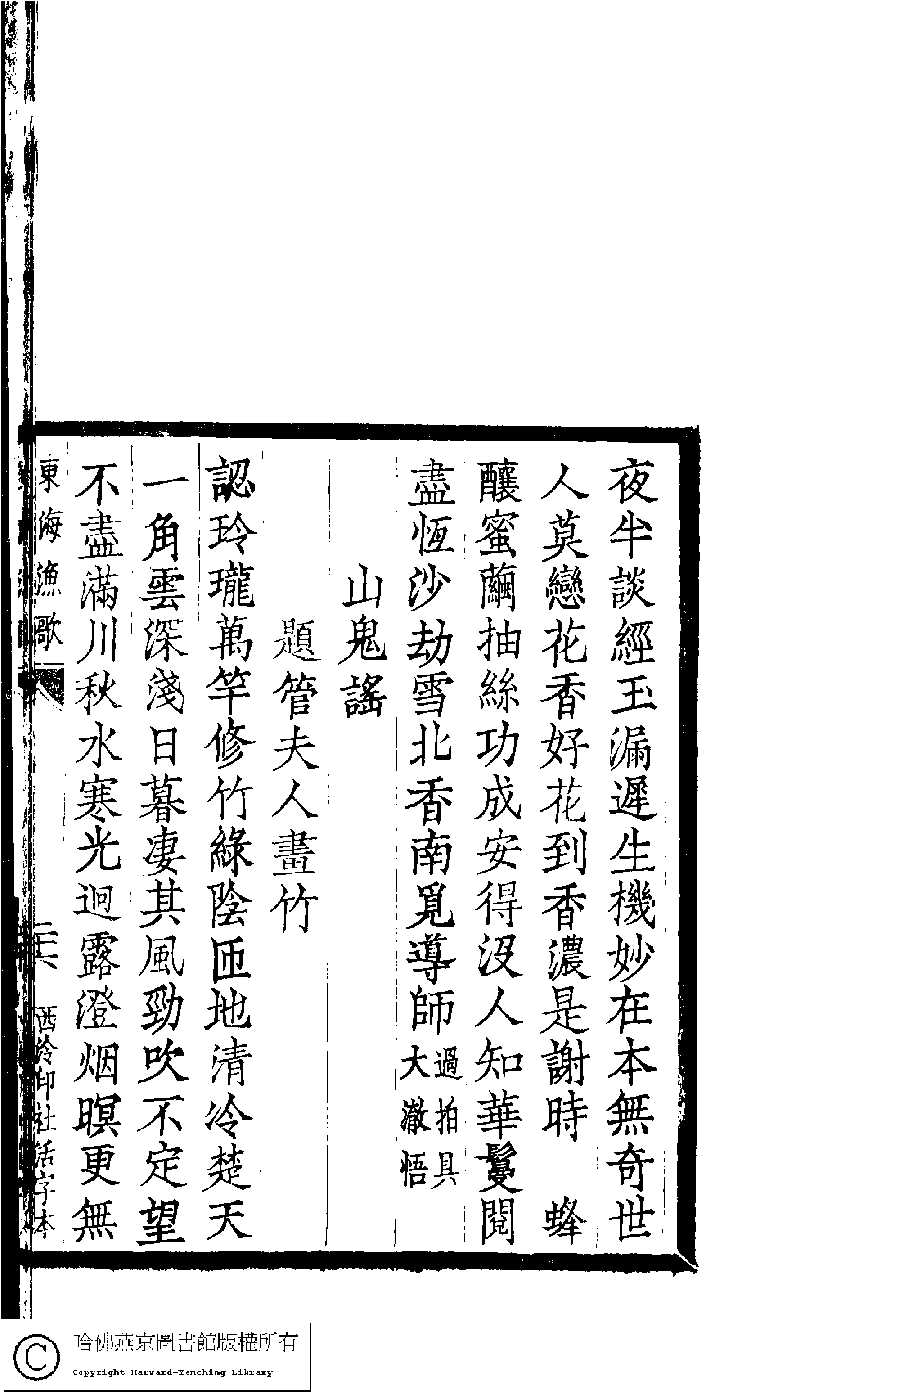 夜半談經玉漏遲生機妙在本無奇世
人莫戀花香好花到香濃是謝時　蜂
釀蜜繭抽絲功成安得沒人知華鬘閱
盡恆沙劫雪北香南覓導師過拍具大澈悟
山鬼謠
題管夫人畫竹
認玲瓏萬竿修竹綠陰匝地清冷楚天
一角雲深淺日暮凄其風勁吹不定望
不盡滿川秋水寒光迥露澄烟暝更無
東海漁歌
西泠印社活字本
哈佛燕京圖書館版權所有
Copyright Harvard-Yenching Library